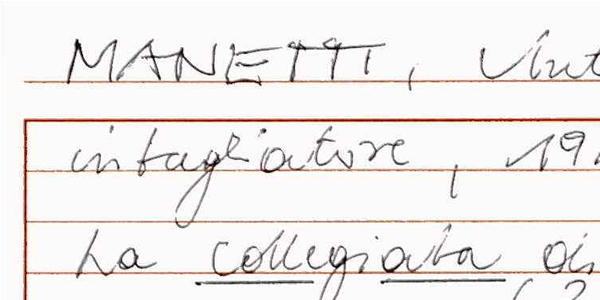 MANETTI,
intagliatore, 19
La collegiata